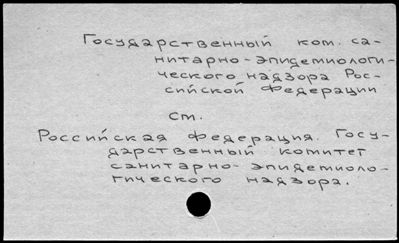 Государственный ком. са-
нитарно-эпидемиологи-
ческого надзора Рос-
сийской Федерации
см.
Российская Федерация. Госу-
дарственный комитет
санитарно-эпидемиоло-
гического надзора.